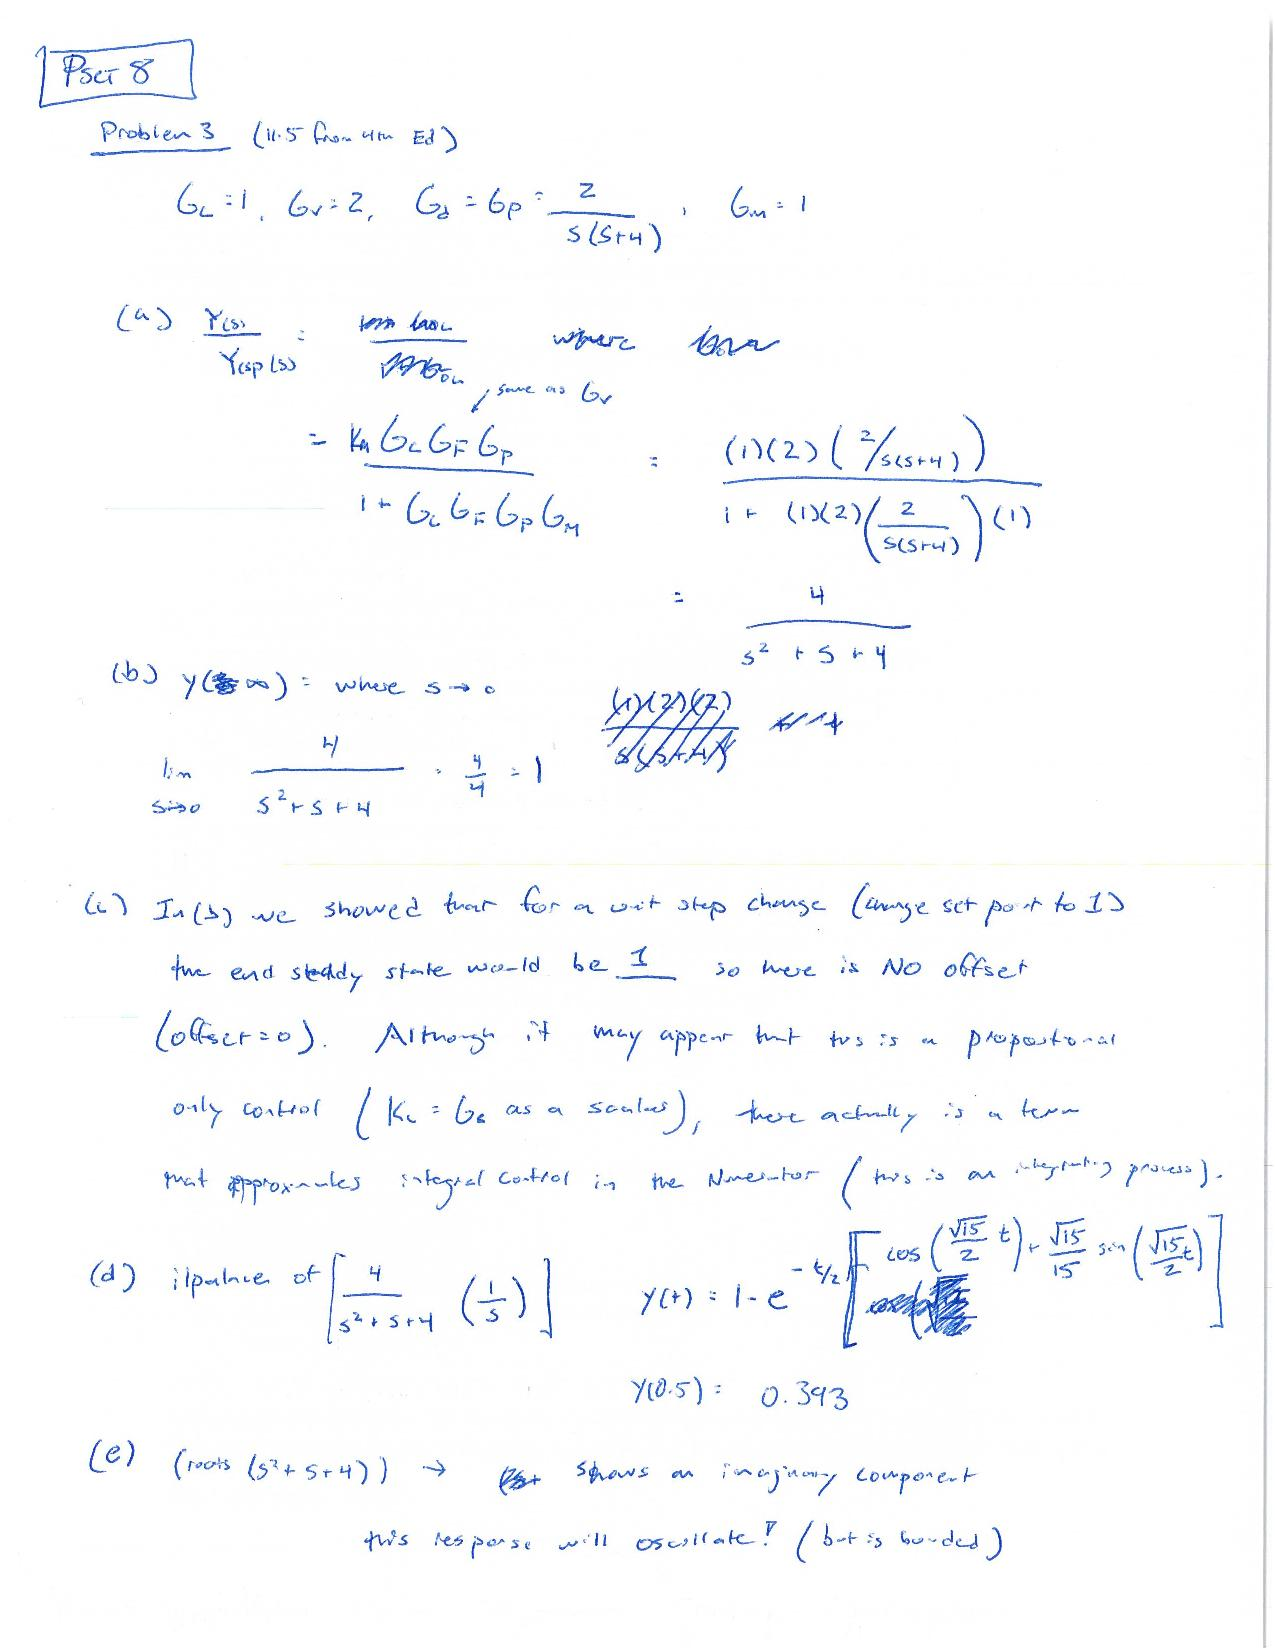 PSET 8
Problem 3 (11.5 from 4th Ed)
Gc = 1, Gv = 2, Gd = Gp = 2 / s(s+4), Gm = 1
(a) Y(s) / Ysp(s) = where
same as Gv
= Km Gc GF Gp / 1 + Gc GF Gp GM = (1)(2)(2/s(s+4)) / 1 + (1)(2)(2 / s(s+4))(1)
= 4 / s² + s + 4
(b) y(∞) = where s → 0 (1)(2)(2) / s(s+4)
lim s→0 4 / s² + s + 4 = 4/4 = 1
(c) In (b) we showed that for a unit step change (change set point to 1)
the end steady state would be 1 so there is NO offset
(offset = 0). Although it may appear that this is a proportional
only control (Kc = Gc as a scalar), there actually is a term
that approximates integral control in the Numerator (this is an integrating process).
(d) ilaplace of [4 / s² + s + 4 (1/s)] y(t) = 1 - e^-t/2 [cos(√15/2 t) + √15/15 sin(√15/2 t)]
y(0.5) = 0.393
(e) (roots (s² + s + 4)) → shows an imaginary component
this response will oscillate! (but is bounded)